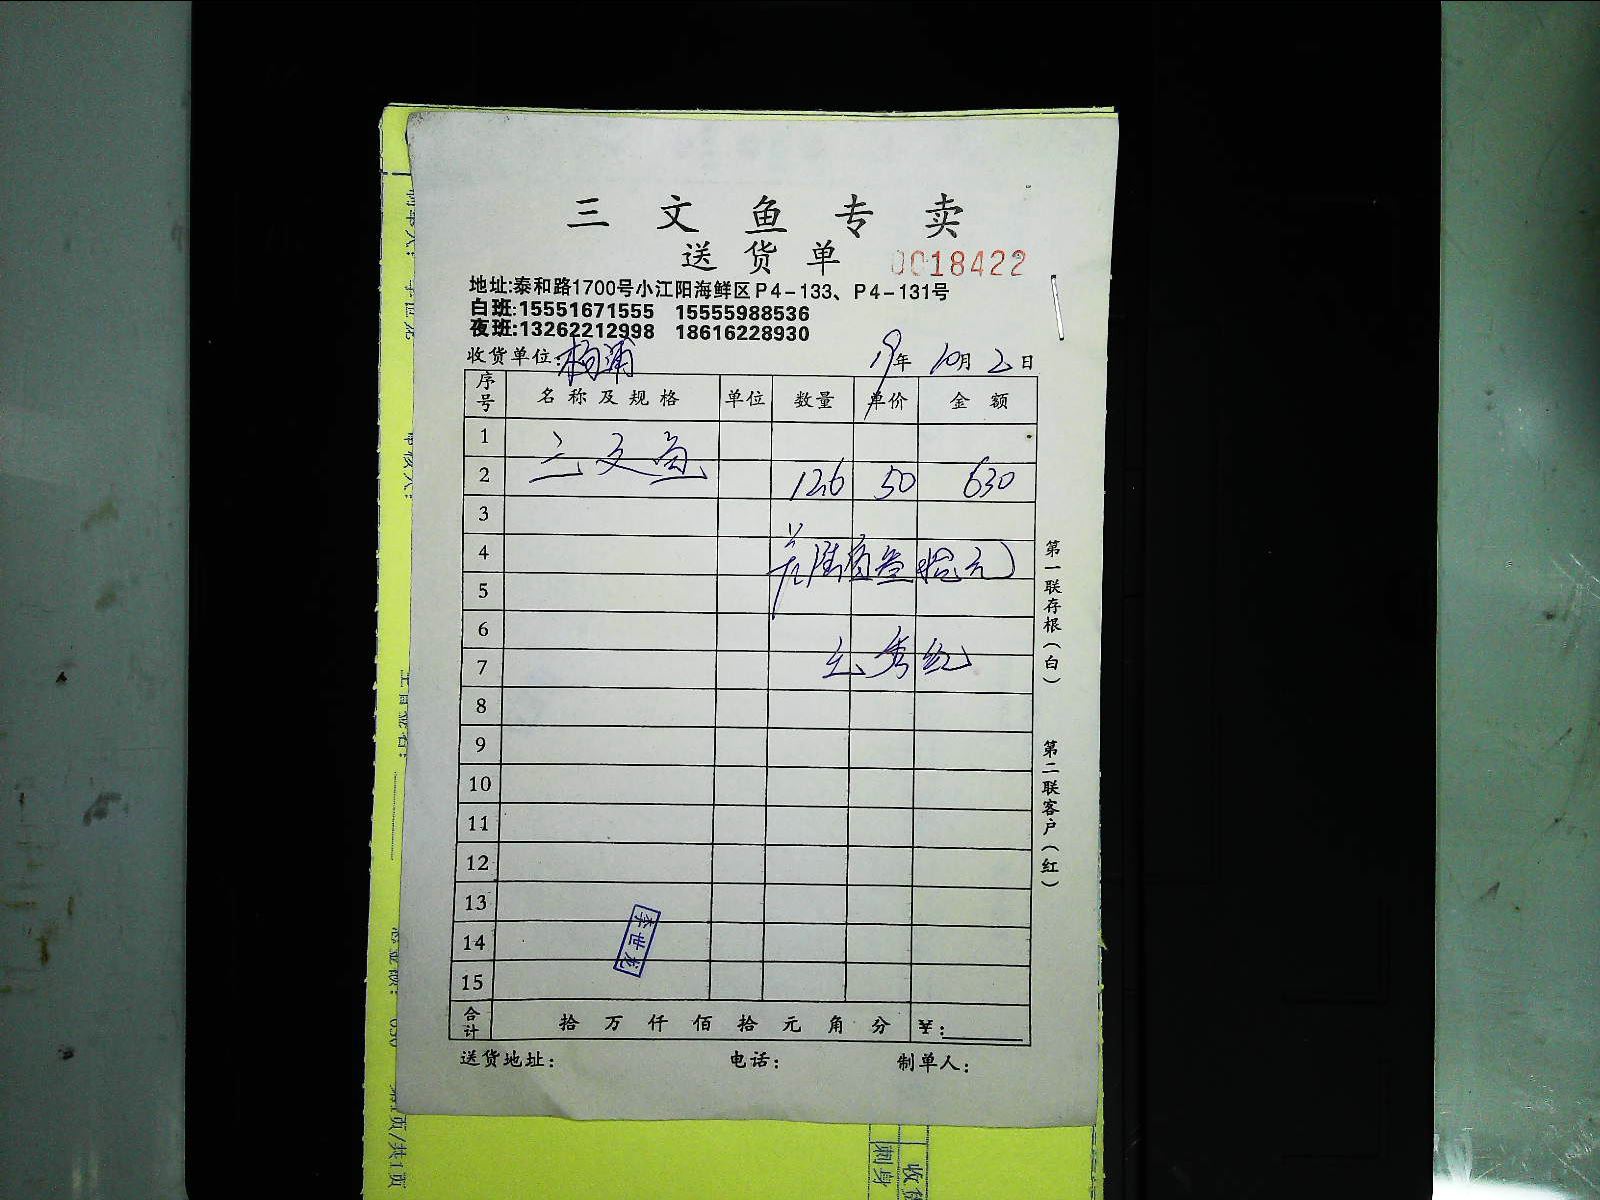 三文鱼专卖
送货单 0018422
地址:泰和路1700号小江阳海鲜区P4-133、P4-131号
白班:15551671555 15555988536
夜班:13262212998 18616228930
收货单位:杨浦 19年10月2日
序号 名称及规格 单位 数量 单价 金额
1
三文鱼
2 12.6 50 630
3
4 陆百叁拾元
5
6
7
8
9
10
11
12
13
李世龙
14
15
合计 拾万仟佰拾元角分 ¥:
送货地址: 电话: 制单人:
第一联存根(白)
第二联客户(红)
页/共1页
刺身